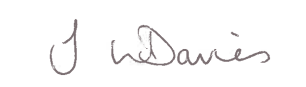 J W Davies